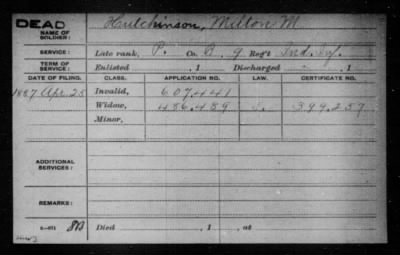 DEAD
NAME OF SOLDIER: Hutchinson, Milton M
SERVICE: Late rank, P. Co. B, 9 Reg't Ind. Inf.
TERM OF SERVICE: Enlisted , 1 Discharged , 1
DATE OF FILING. CLASS. APPLICATION NO. LAW. CERTIFICATE NO.
1887 Apr 25 Invalid, 607,441
Widow, 456,489 399,257
Minor,
ADDITIONAL SERVICES:
REMARKS:
Died , 1 , at